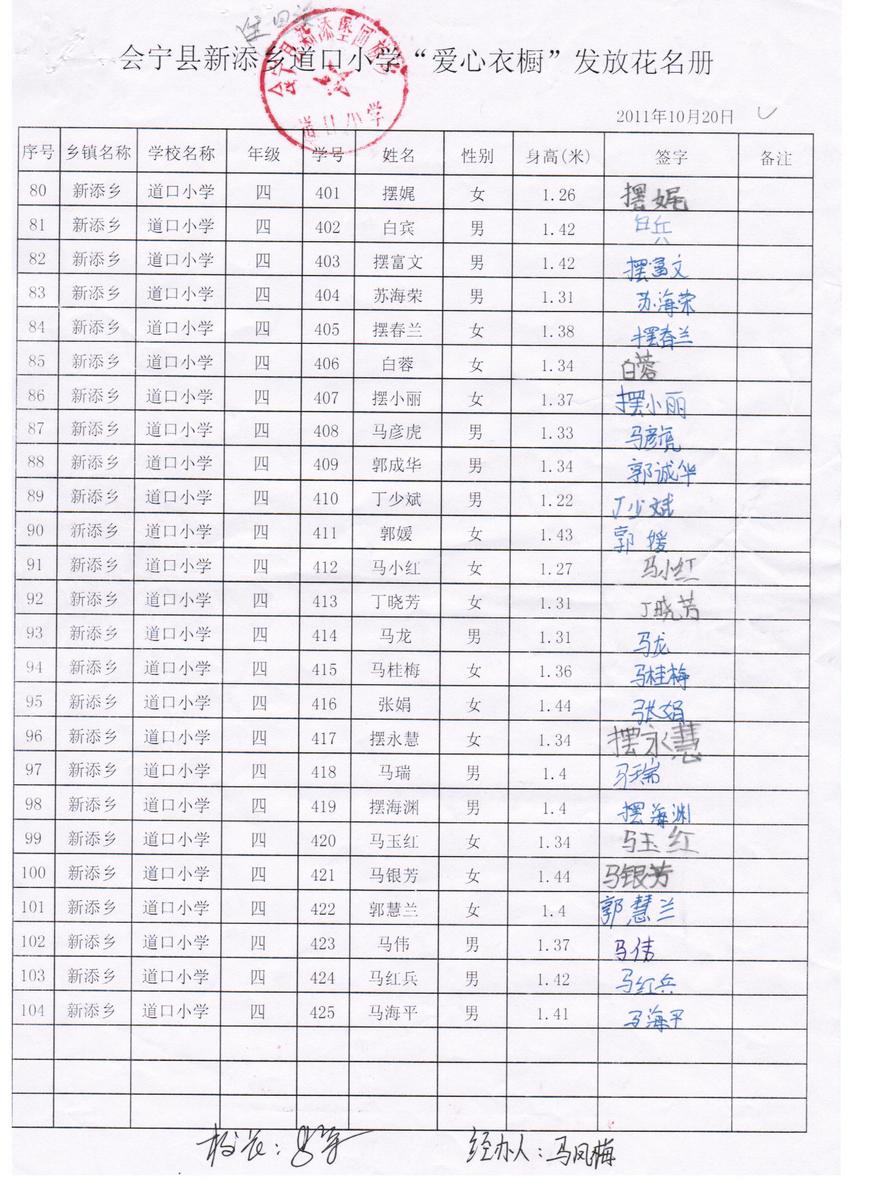 会宁县新添乡道口小学“爱心衣橱”发放花名册
2011年10月20日
序号 乡镇名称 学校名称 年级 学号 姓名 性别 身高(米) 签字 备注
80 新添乡 道口小学 四 401 摆娓 女 1.26 摆娓
81 新添乡 道口小学 四 402 白宾 男 1.42 白兵
82 新添乡 道口小学 四 403 摆富文 男 1.42 摆富文
83 新添乡 道口小学 四 404 苏海荣 男 1.31 苏海荣
84 新添乡 道口小学 四 405 摆春兰 女 1.38 摆春兰
85 新添乡 道口小学 四 406 白蓉 女 1.34 白蓉
86 新添乡 道口小学 四 407 摆小丽 女 1.37 摆小丽
87 新添乡 道口小学 四 408 马彦虎 男 1.33 马彦虎
88 新添乡 道口小学 四 409 郭成华 男 1.34 郭诚华
89 新添乡 道口小学 四 410 丁少斌 男 1.22 丁少斌
90 新添乡 道口小学 四 411 郭媛 女 1.43 郭媛
91 新添乡 道口小学 四 412 马小红 女 1.27 马小红
92 新添乡 道口小学 四 413 丁晓芳 女 1.31 丁晓芳
93 新添乡 道口小学 四 414 马龙 男 1.31 马龙
94 新添乡 道口小学 四 415 马桂梅 女 1.36 马桂梅
95 新添乡 道口小学 四 416 张娟 女 1.44 张娟
96 新添乡 道口小学 四 417 摆永慧 女 1.34 摆永慧
97 新添乡 道口小学 四 418 马瑞 男 1.4 马瑞
98 新添乡 道口小学 四 419 摆海渊 男 1.4 摆海渊
99 新添乡 道口小学 四 420 马玉红 女 1.34 马玉红
100 新添乡 道口小学 四 421 马银芳 女 1.44 马银芳
101 新添乡 道口小学 四 422 郭慧兰 女 1.4 郭慧兰
102 新添乡 道口小学 四 423 马伟 男 1.37 马伟
103 新添乡 道口小学 四 424 马红兵 男 1.42 马红兵
104 新添乡 道口小学 四 425 马海平 男 1.41 马海平
校长: 经办人:马凤梅